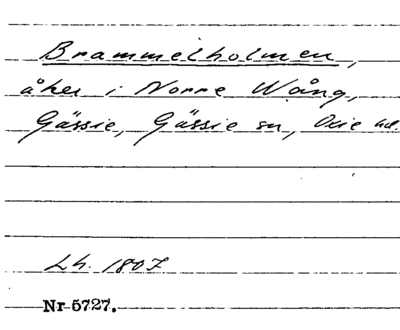 Brammelholmen,
åker i Norre Wång,
Gässie, Gässie sn, Oxie hd.
Lh. 1807
Nr 5727.